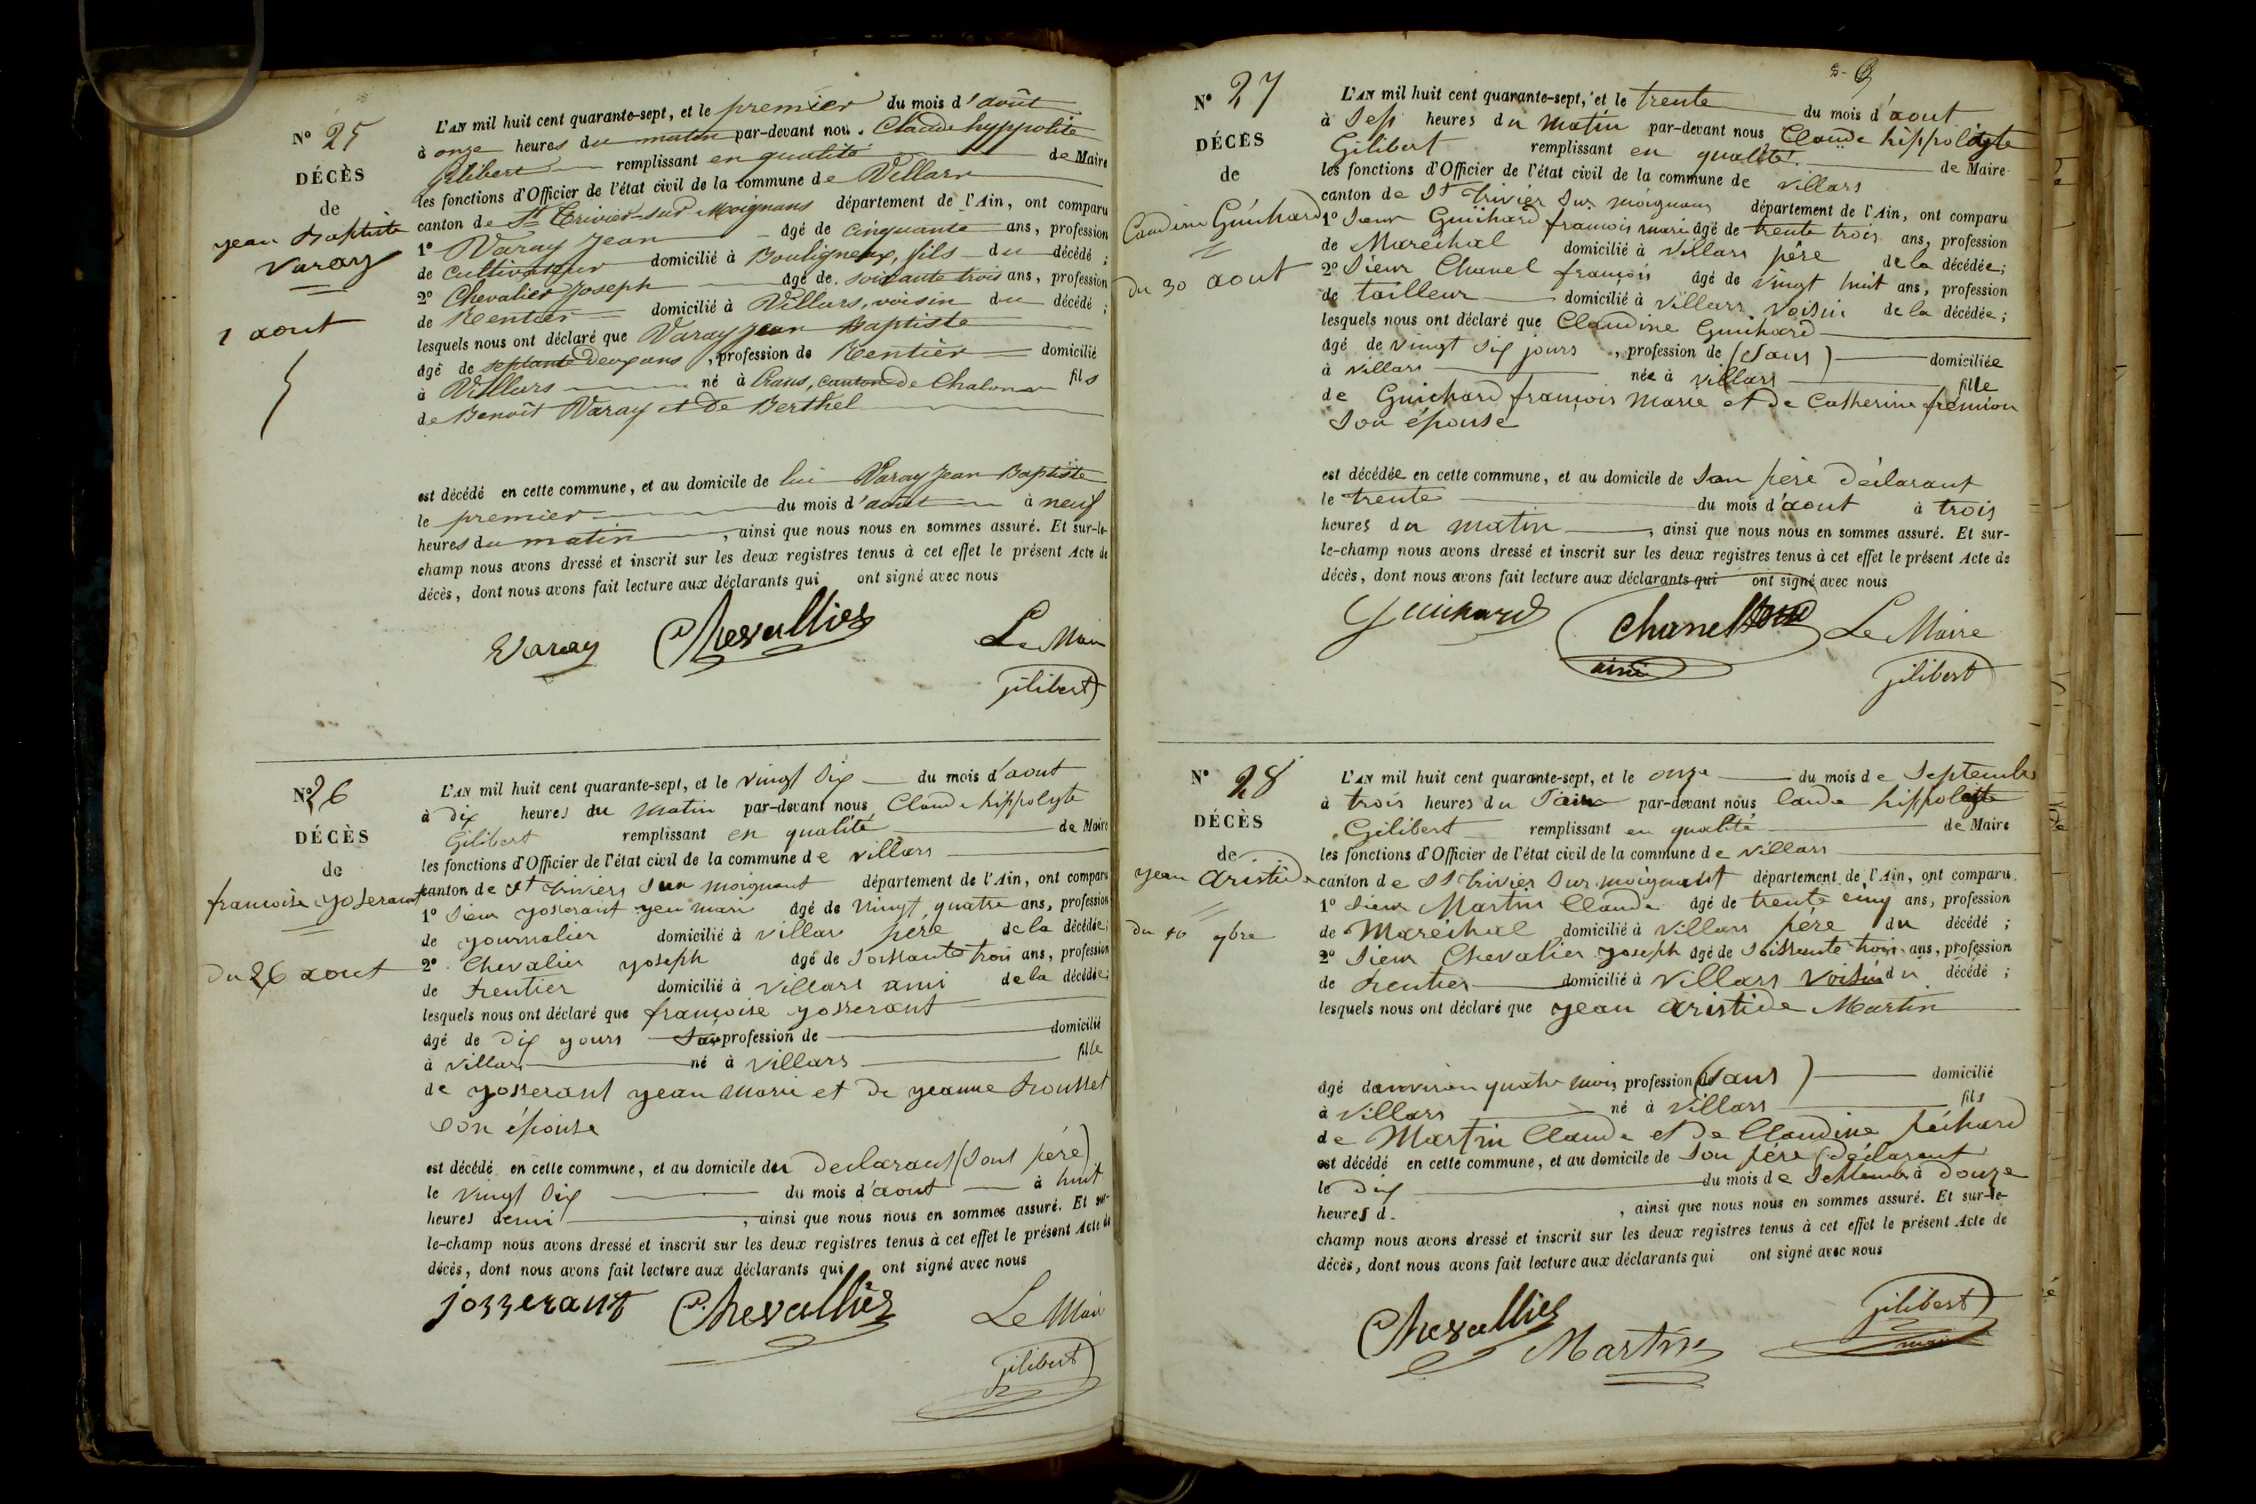 N° 25
DÉCÈS
de
jean Baptiste
Varay
1 aout
L'AN mil huit cent quarante-sept, et le premier du mois d'août
à onze heures du matin par-devant nou. Claude hyppolite
Gilibert remplissant en qualité de Maire
les fonctions d'Officier de l'état civil de la commune de Villars
canton de St Trivier-sur Moignans département de l'Ain, ont comparu
1° Varay Jean âgé de cinquante ans, profession
de cultivateur domicilié à Bouligneux, fils du décédé ;
2° Chevalier Joseph âgé de soixante trois ans, profession
de Rentier domicilié à Villars, voisin du décédé ;
lesquels nous ont déclaré que Varay Jean Baptiste
âgé de septante deux ans, profession de Rentier domicilié
à Villars né à Crans, canton de Chalam fils
de Benoît Varay et de Berthel
est décédé en cette commune, et au domicile de lui Varay Jean Baptiste
le premier du mois d'aout à neuf
heures du matin, ainsi que nous nous en sommes assuré. Et sur-le-
champ nous avons dressé et inscrit sur les deux registres tenus à cet effet le présent Acte de
décès, dont nous avons fait lecture aux déclarants qui ont signé avec nous
Varay Chevallier Le Maire
Gilibert
N° 26
DÉCÈS
de
francoise yosserant
Du 26 aout
L'AN mil huit cent quarante-sept, et le vingt six du mois d'aout
à dix heures du matin par-devant nous Claude hippolyte
Gilibert remplissant en qualité de Maire
les fonctions d'Officier de l'état civil de la commune de villars
canton de St triviers sur moignant département de l'Ain, ont comparu
1° Sieur yosserant yean marie âgé de vingt quatre ans, profession
de yournalier domicilié à villars père de la décédée;
2° Chevalier yoseph âgé de soissante trois ans, profession
de rentier domicilié à villars ami de la décédée;
lesquels nous ont déclaré que françoise yosserant
âgé de dix yours sans profession de domicilié
à villars né à villars fille
de yosserant yean marie et de yeanne trousset
son épouse
est décédé en cette commune, et au domicile du declarant (sont père)
le vingt six du mois d'aout à huit
heures demi, ainsi que nous nous en sommes assuré. Et sur-
le-champ nous avons dressé et inscrit sur les deux registres tenus à cet effet le présent Acte de
décès, dont nous avons fait lecture aux déclarants qui ont signé avec nous
jozzerant Chevallier Le Maire
Gilibert
N° 27
DÉCÈS
de
Caudine Guichard
du 30 aout
L'AN mil huit cent quarante-sept, et le trente du mois d'aout
à sept heures du matin par-devant nous Claude hippolyte
Gilibert remplissant en qualité de Maire
les fonctions d'Officier de l'état civil de la commune de villars
canton de St trivier sur moignans département de l'Ain, ont comparu
1° Sieur Guichard françois marie âgé de trente trois ans, profession
de Maréchal domicilié à villars père de la décédée;
2° Sieur Chanel françois âgé de vingt huit ans, profession
de tailleur domicilié à villars voisin de la décédée;
lesquels nous ont déclaré que Claudine Guichard
âgé de vingt six jours, profession de (sans) domiciliée
à villars née à villars fille
de Guichard françois marie et de Catherine frémion
son épouse
est décédée en cette commune, et au domicile de son père déclarant
le trente du mois d'aout à trois
heures du matin, ainsi que nous nous en sommes assuré. Et sur-
le-champ nous avons dressé et inscrit sur les deux registres tenus à cet effet le présent Acte de
décès, dont nous avons fait lecture aux déclarants qui ont signé avec nous
Guichard Chanel Le Maire
ainé Gilibert
N° 28
DÉCÈS
de
yean aristide
du 10 9bre
L'AN mil huit cent quarante-sept, et le onze du mois de Septembre
à trois heures du soir par-devant nous laude hippolyte
Gilibert remplissant en qualité de Maire
les fonctions d'Officier de l'état civil de la commune de villars
canton de St trivier sur moignant département de l'Ain, ont comparu
1° Sieur Martin Claude âgé de trente cinq ans, profession
de Maréchal domicilié à villars père du décédé ;
2° Sieur Chevalier yoseph âgé de soissente trois ans, profession
de rentier domicilié à villars voisin du décédé ;
lesquels nous ont déclaré que yean aristide Martin
âgé denviron quatre mois profession de (sans) domicilié
à villars né à villars fils
de Martin Claude et de Claudine péchard
est décédé en cette commune, et au domicile de son père déclarant
le dix du mois de Septembre à douze
heures d. , ainsi que nous nous en sommes assuré. Et sur-le-
champ nous avons dressé et inscrit sur les deux registres tenus à cet effet le présent Acte de
décès, dont nous avons fait lecture aux déclarants qui ont signé avec nous
Chevallier Martin Gilibert